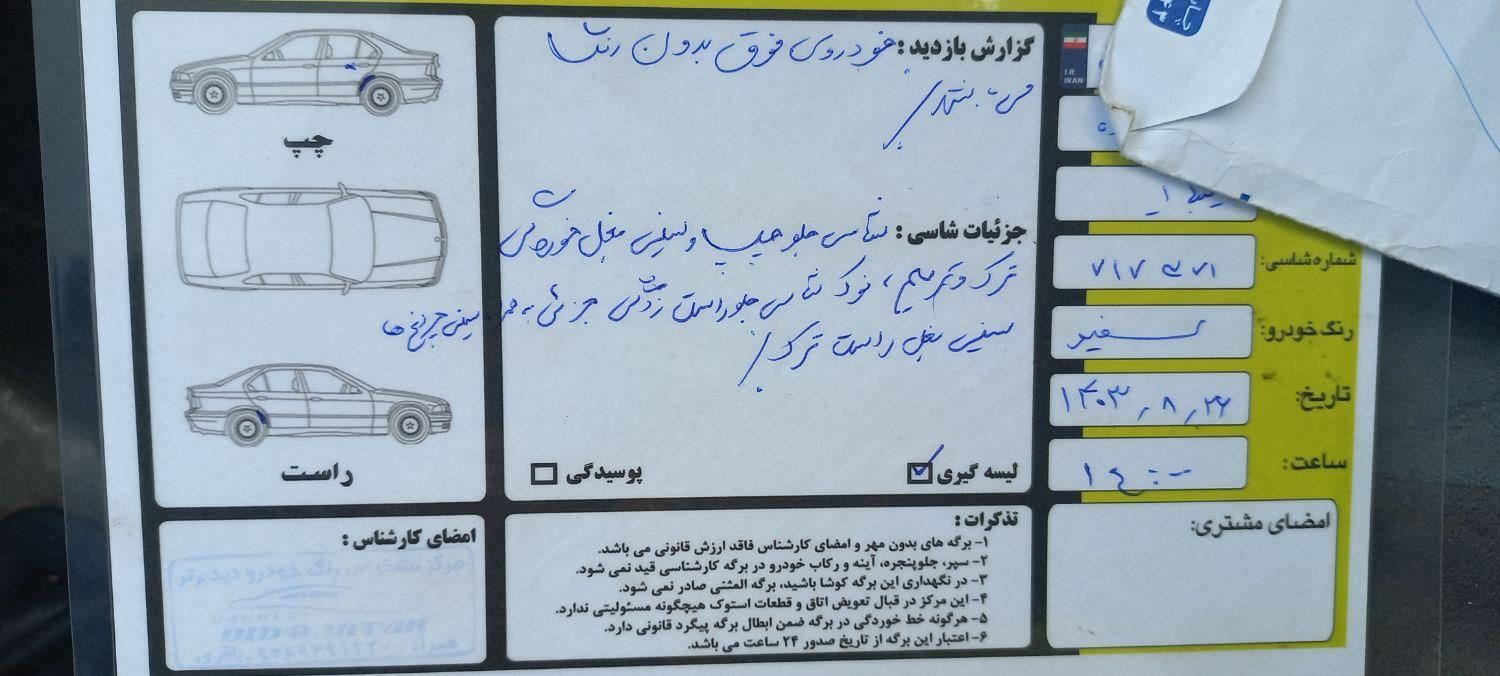 I.R.
IRAN
شماره شاسی:
رنگ خودرو: سفید
تاریخ: ۱۴۰۳٫۸٫۲۶
ساعت:
امضای مشتری:
گزارش بازدید: خودروی فوق بدون رنگ
جزئیات شاسی: شاسی جلو چپ و سینی بغل خوردگی
ترک و ترمیم، نوک شاسی جلو راست زدگی جزئی به همراه سینی چرخ ها
سینی بغل راست ترک
لیسه گیری ✓
پوسیدگی
تذکرات:
۱- برگه های بدون مهر و امضای کارشناس فاقد ارزش قانونی می باشد.
۲- سپر، جلوپنجره، آینه و رکاب خودرو در برگه کارشناسی قید نمی شود.
۳- در نگهداری این برگه کوشا باشید، برگه المثنی صادر نمی شود.
۴- این مرکز در قبال تعویض اتاق و قطعات استوک هیچگونه مسئولیتی ندارد.
۵- هرگونه خط خوردگی در برگه ضمن ابطال برگه پیگرد قانونی دارد.
۶- اعتبار این برگه از تاریخ صدور ۲۴ ساعت می باشد.
چپ
راست
امضای کارشناس:
مرکز تشخیص رنگ خودرو دیدبرتر
DID BARTAR
همراه: ۰۹۳۶۹۳۹۱۲۲۰ باقری